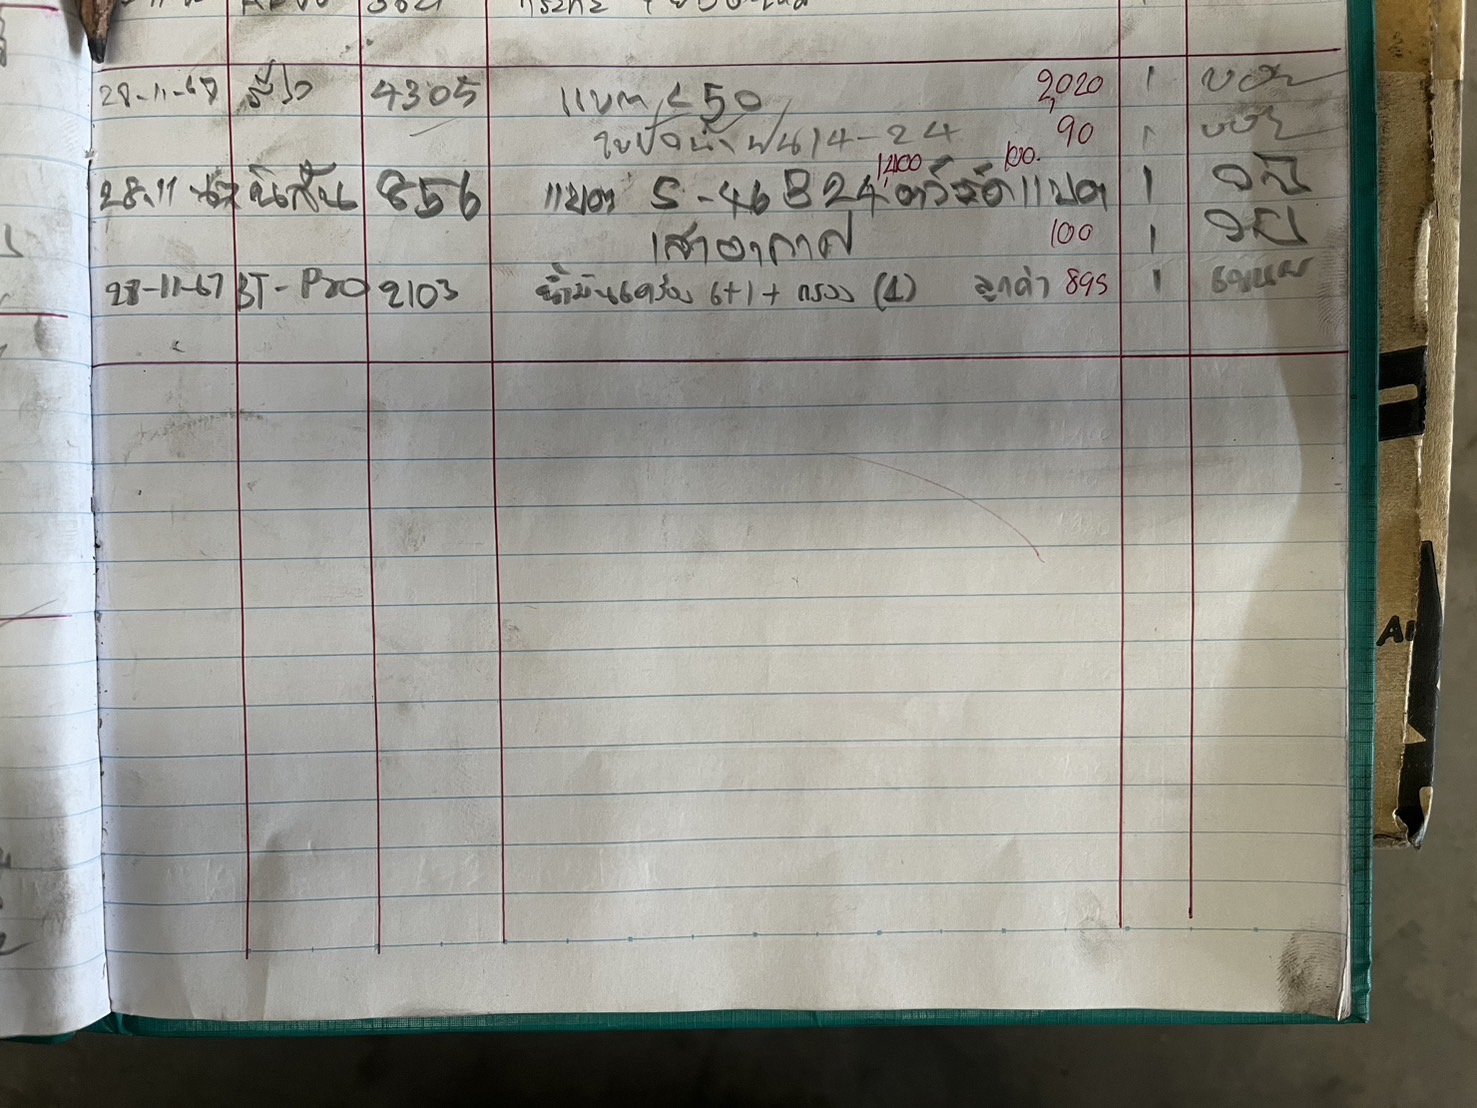 28-11-67 วีโก 4305 แบต L50 2,020 1 บอย
ใบปัดน้ำฝน 14-24 90 1 บอย
28.11 นิสสัน 856 แบต S-46B24 1,400 ตัวรัดแบต 100. 1
เสาอากาศ 100 1
28-11-67 BT-Pro 2103 น้ำมันเครื่อง 6+1 + กรอง (1) ลูกค้า 895 1